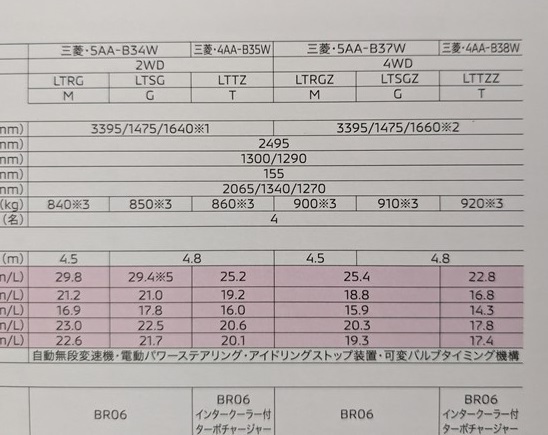 三菱・5AA-B34W 三菱・4AA-B35W 三菱・5AA-B37W 三菱・4AA-B38W
2WD 4WD
LTRG LTSG LTTZ LTRGZ LTSGZ LTTZZ
M G T M G T
mm) 3395/1475/1640※1 3395/1475/1660※2
mm) 2495
mm) 1300/1290
mm) 155
mm) 2065/1340/1270
(kg) 840※3 850※3 860※3 900※3 910※3 920※3
(名) 4
(m) 4.5 4.8 4.5 4.8
m/L) 29.8 29.4※5 25.2 25.4 22.8
m/L) 21.2 21.0 19.2 18.8 16.8
m/L) 16.9 17.8 16.0 15.9 14.3
m/L) 23.0 22.5 20.6 20.3 17.8
m/L) 22.6 21.7 20.1 19.3 17.4
自動無段変速機・電動パワーステアリング・アイドリングストップ装置・可変バルブタイミング機構
BR06 BR06 インタークーラー付 ターボチャージャー BR06 BR06 インタークーラー付 ターボチャージャー